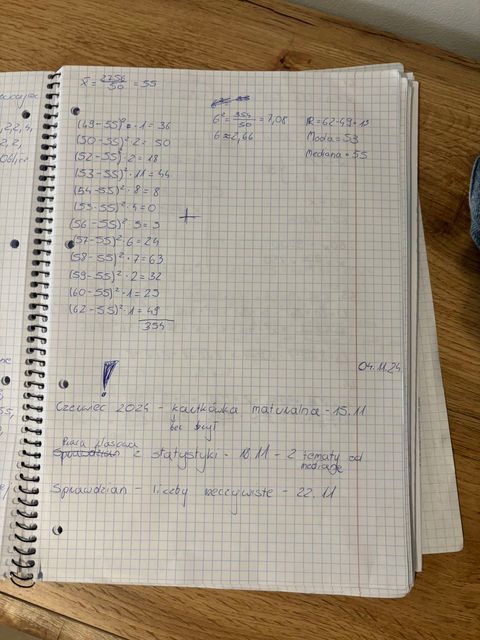 x̄ = 2756/50 = 55
(49-55)² · 1 = 36
(50-55)² · 2 = 50
(52-55)² · 2 = 18
(53-55)² · 11 = 44
(54-55)² · 8 = 8
(55-55)² · 5 = 0
(56-55)² · 5 = 5
(57-55)² · 6 = 24
(58-55)² · 7 = 63
(59-55)² · 2 = 32
(60-55)² · 1 = 25
(62-55)² · 1 = 49
354
6² = 354/50 = 7,08
6 ≈ 2,66
R = 62-49 = 13
Moda = 53
Mediana = 55
04.11.24
!
Czerwiec 2024 - kartkówka maturalna - 15.11
bez brył
Praca klasowa
Sprawdzian z statystyki - 18.11 - 2 tematy od
mediany
Sprawdzian - liczby rzeczywiste - 22.11